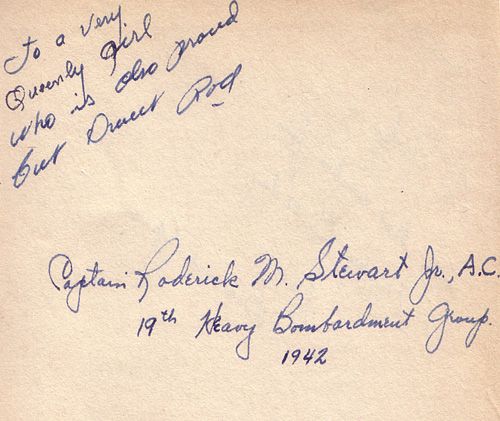 To a very
Queenly Girl
who is also proud
but Direct Rod
Captain Roderick M. Stewart Jr., A.C.
19th Heavy Bombardment Group.
1942